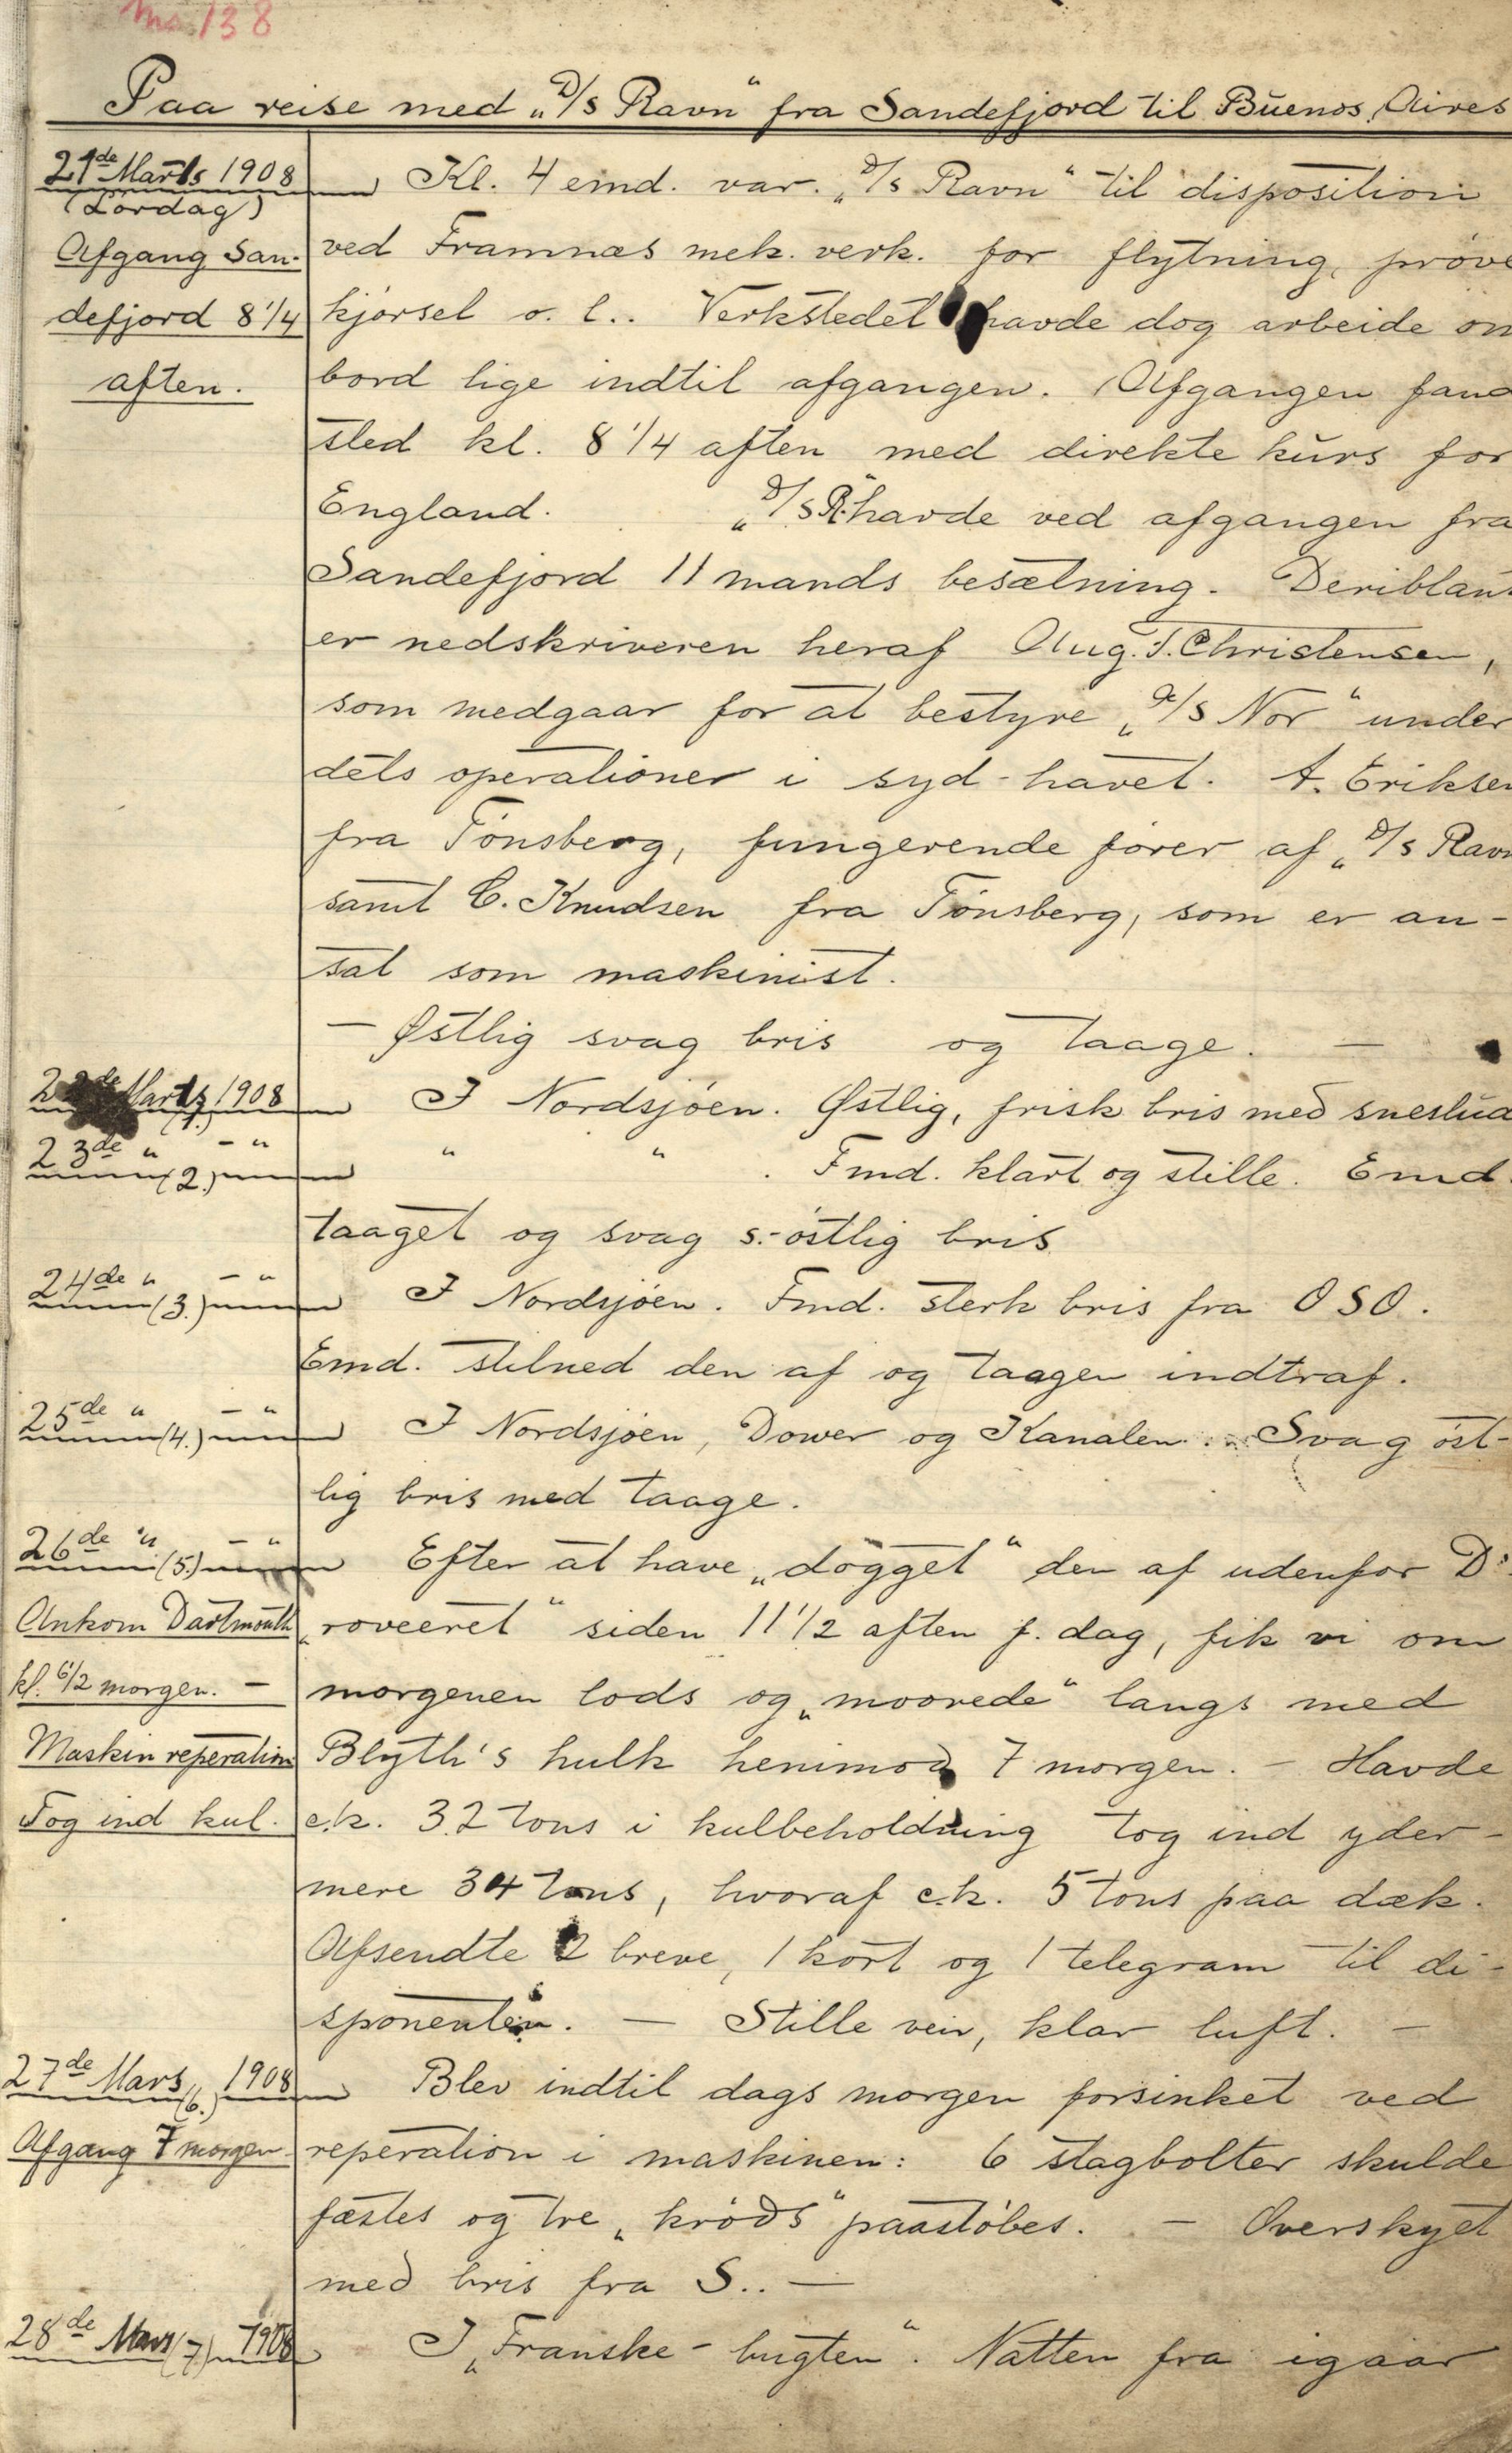 Ms. 138
Paa reise med „D/s Ravn“ fra Sandefjord til Buenos Aires
21de Marts 1908
(Lørdag)
Afgang San-
defjord 8 1/4
aften.
Kl. 4 emd. var „D/s Ravn“ til disposition
ved Framnæs mek. verk. for flytning, prøve
kjørsel o. l.. Verkstedet havde dog arbeide om
bord lige indtil afgangen. Afgangen fand
sted kl. 8 1/4 aften med direkte kurs for
England. „D/s R.“ havde ved afgangen fra
Sandefjord 11 mands besætning. Deriblant
er nedskriveren heraf Aug. F. Christensen,
som medgaar for at bestyre „A/s Nor“ under
dets operationer i syd-havet. A. Eriksen
fra Tønsberg, fungerende fører af „D/s Ravn
samt C. Knudsen fra Tønsberg, som er an-
sat som maskinist.
— Østlig svag bris og taage. —
22de Marts 1908
(1.)
I Nordsjøen. Østlig, frisk bris med sneslud
23de " - "
(2.)
" " . Fmd. klart og stille. Emd.
taaget og svag s.-østlig bris
24de " - "
(3.)
I Nordsjøen. Fmd. sterk bris fra OSO.
Emd. stilned den af og taagen indtraf.
25de " - "
(4.)
I Nordsjøen, Dower og Kanalen. Svag øst-
lig bris med taage.
26de " - "
(5.)
Ankom Dartmouth
kl. 6 1/2 morgen. —
Maskin reperation
Tog ind kul.
Efter at have „dogget“ den af udenfor D:
„roveeret“ siden 11 1/2 aften f. dag, fik vi om
morgenen lods og „moorede“ langs med
Blyth's hulk henimod 7 morgen. — Havde
c.k. 32 tons i kulbeholdning tog ind yder-
mere 34 tons, hvoraf c.k. 5 tons paa dæk.
Afsendte 2 breve, 1 kort og 1 telegram til di-
sponenten. — Stille veir, klar luft. —
27de Mars 1908
(6.)
Afgang 7 morgen.
Blev indtil dags morgen forsinket ved
reperation i maskinen: 6 stagbolter skulde
fæstes og tre „krøds“ paastøbes. — Overskyet
med bris fra S.. —
28de Mars 1908
(7.)
I „Franske-bugten“. Natten fra igaar